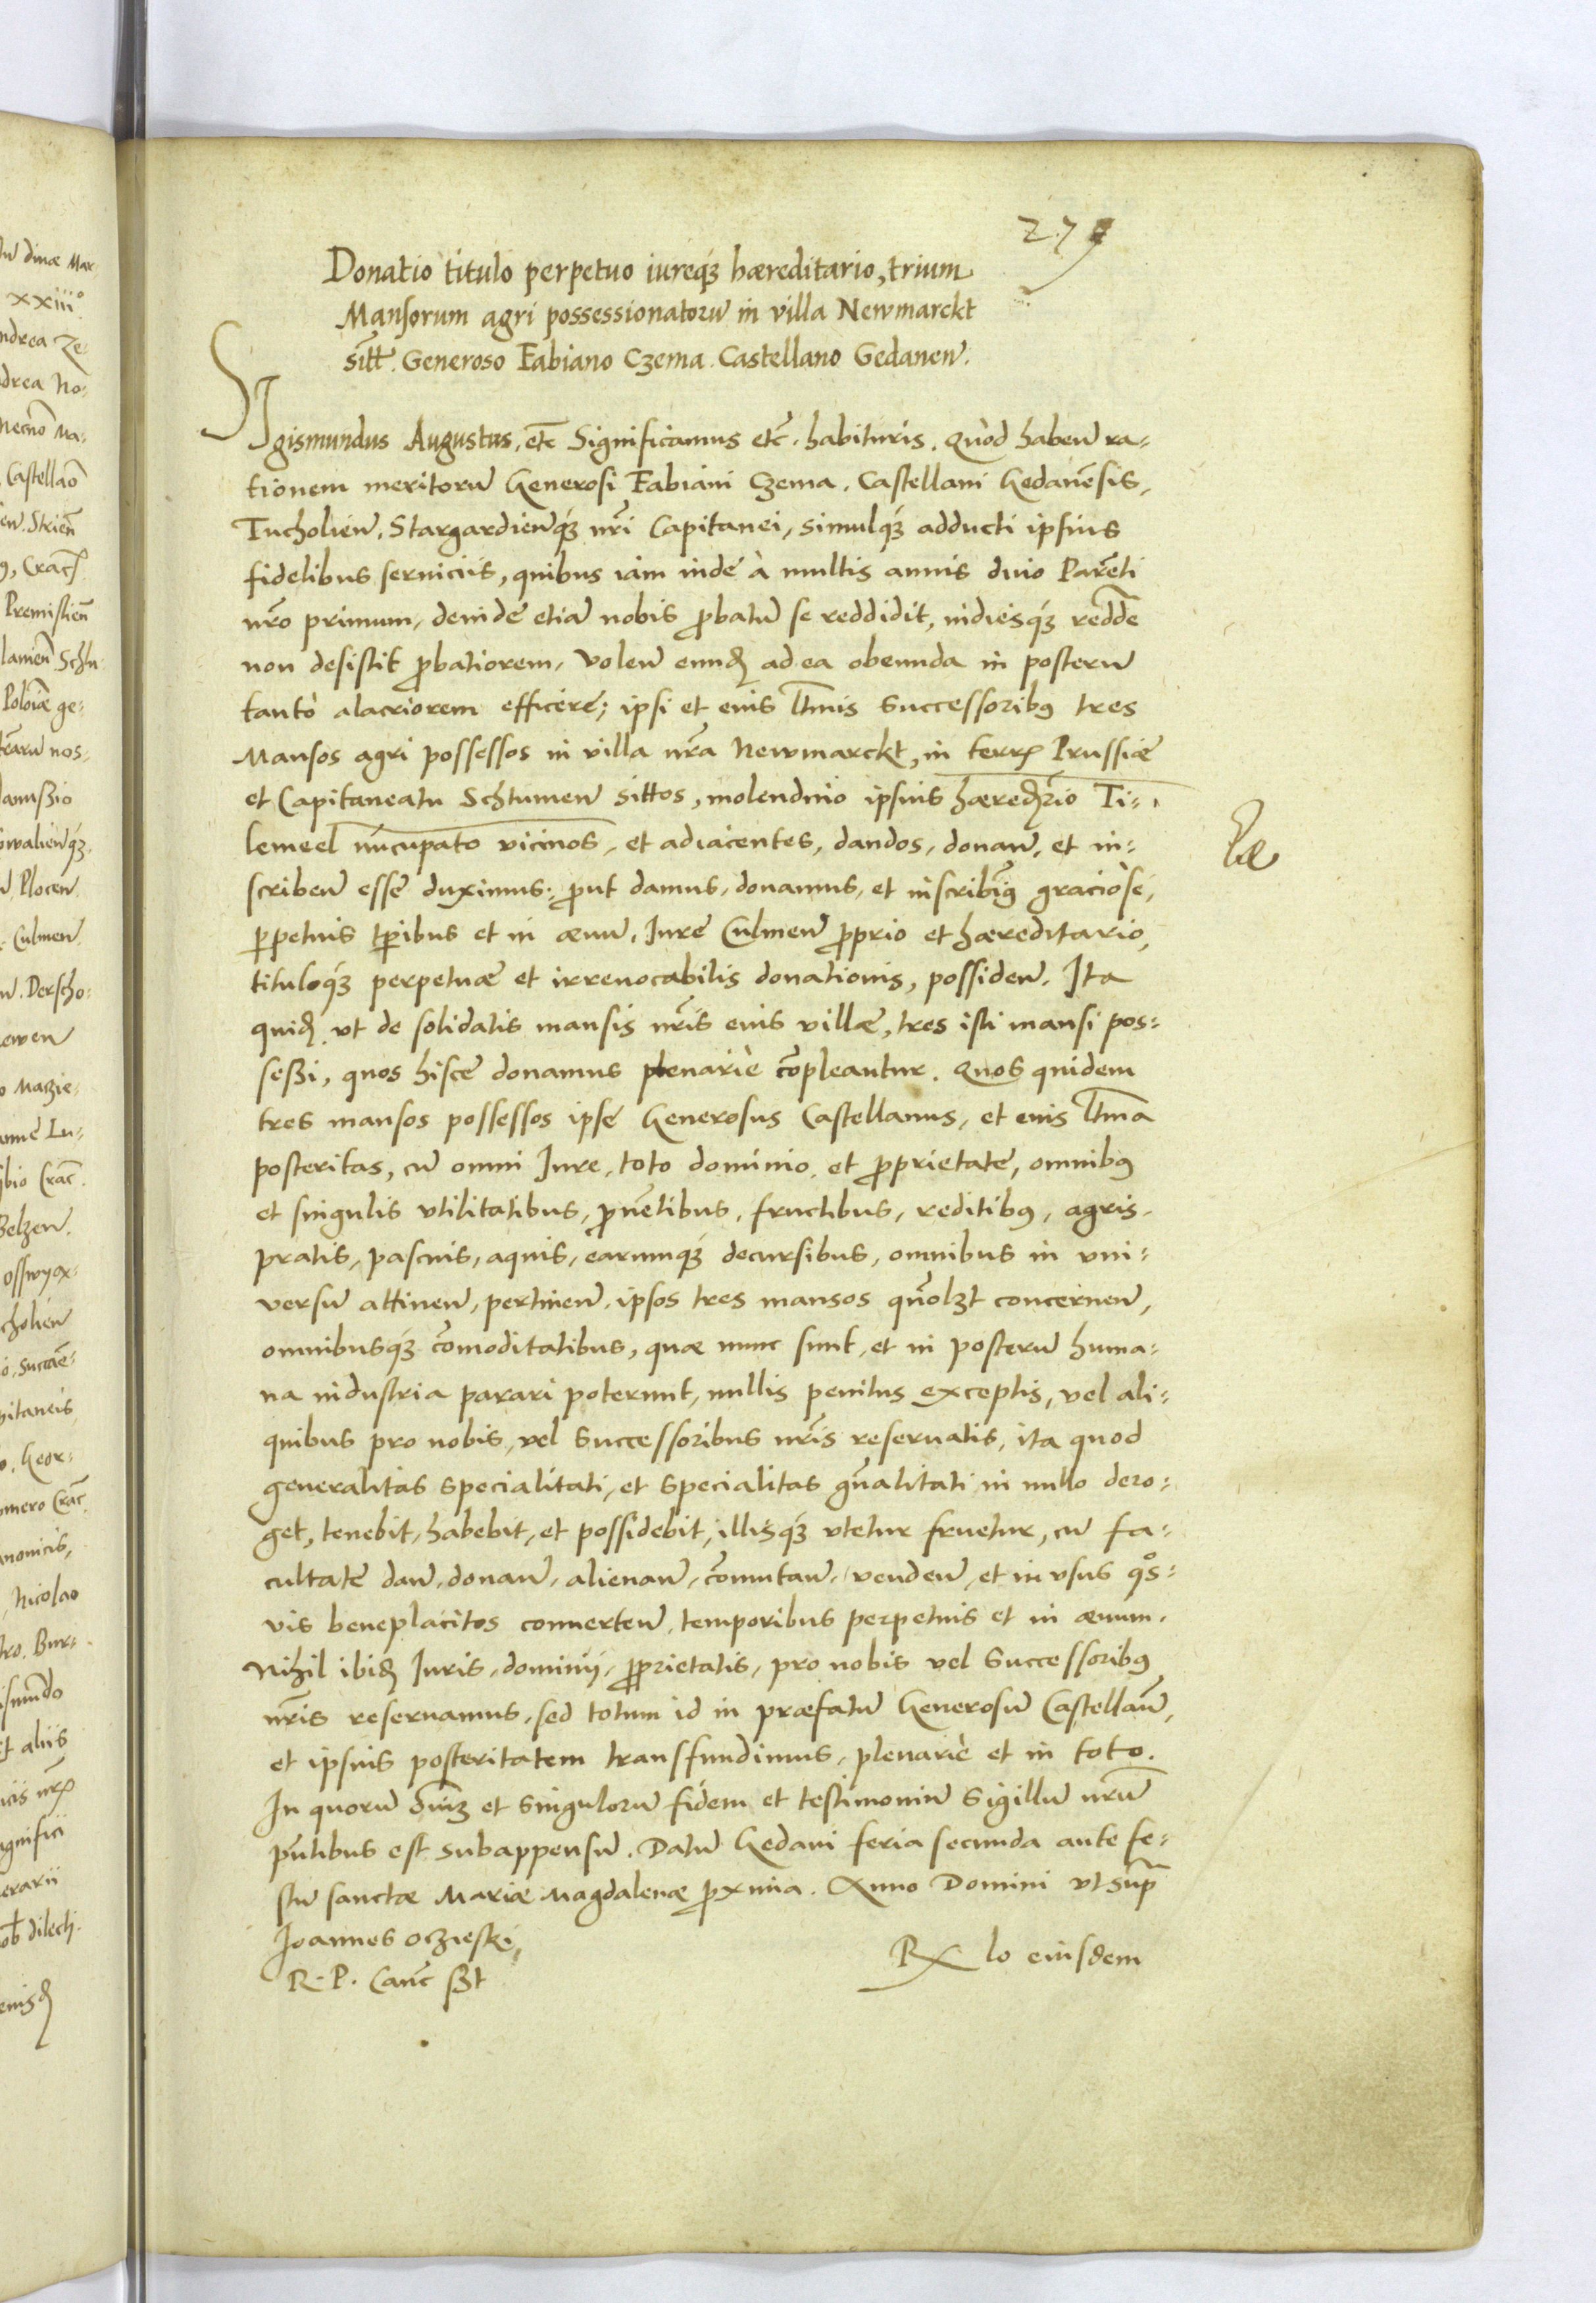 279
Donatio titulo perpetuo iureq́ꝫ hæreditario, trium
Mansorum agri possessionatorū in villa Newmarckt
sitt̄. Generoso Fabiano Czema. Castellano Gedaneñ.
SIgismundus Augustus, etc̄ Significamus etc̄. habituris. Quòd habeñ ra-
tionem meritorū Generosi Fabiani Czema. Castellani Gedaneñsis,
Tucholieñ, Stargardieñq́ꝫ nr̄i Capitanei, simulq́ꝫ adducti ipsius
fidelibus seruiciis, quibus iàm indè à multis annis diuo Parēti
nr̄o primum, deindè etiā nobis ꝓbatū se reddidit, indiesq́ꝫ redde
non desistit ꝓbatiorem, voleñ eund ad ea obeunda in posterū
tantò alacriorem efficere; ipsi et eius ltīmis Successoribꝰ tres
Mansos agri possessos in villa nr̄a Newmarckt, in terrꝫ Prussiæ
et Capitaneatu Schtumeñ sittos, molendino ipsius hæredr̄io Ti-
lemeel nūcupato vicinos, et adiacentes, dandos, donañ, et in-
scribeñ esse duximus: ꝓut damus, donamus, et inscribimꝰ graciosè,
ꝑpetuis tꝑibus et in æuū, Iure Culmeñ ꝓprio et hæreditario,
tituloq́ꝫ perpetuæ et irreuocabilis donationis, possideñ. Ita
quid, vt de solidatis mansis nr̄is eius villæ, tres isti mansi pos-
seßi, quos hisce donamus plenariè cōpleantur. Quos quidem
tres mansos possessos ipse Generosus Castellanus, et eius ltīma
posteritas, cū omni Iure, toto dominio, et ꝓprietate, omnibꝰ
et singulis vtilitatibus, ꝓuētibus, fructibus, reditibꝰ, agris,
pratis, pascuis, aquis, earumq́ꝫ decursibus, omnibus in vni-
versū attineñ, pertineñ, ipsos tres mansos qūolꝫt concerneñ,
omnibusq́ꝫ cōmoditatibus, quæ nunc sunt, et in posterū huma-
na industria parari poterunt, nullis penitus exceptis, vel ali-
quibus pro nobis, vel Successoribus nr̄is reseruatis, ita quod
generalitas specialitati, et specialitas gn̄alitati in nullo dero-
get, tenebit, habebit, et possidebit, illisq́ꝫ vtetur fruetur, cū fa-
cultate dañ, donañ, alienañ, cōmutañ, vendeñ, et in vsus qos-
vis beneplacitos conuerteñ, temporibus perpetuis et in æuum.
Nihil ibid Iuris, dominij, ꝓprietatis, pro nobis vel Successoribꝰ
nr̄is reseruamus, sed totum id in præfatū Generosū Castellanū,
et ipsius posteritatem transfundimus, plenariè et in toto.
In quorū om̄iꝫ et singulorū fidem et testimoniū Sigillū nr̄ū
pn̄tibus est subappensū. Datū Gedani feria secunda ante fe-
stū sanctæ Mariæ Magdalenæ ꝓxima. Anno Domini vt supr̄
Ioannes Oczieski,
R. P. Canc̄ sszt
Rx̄ lo eiusdem